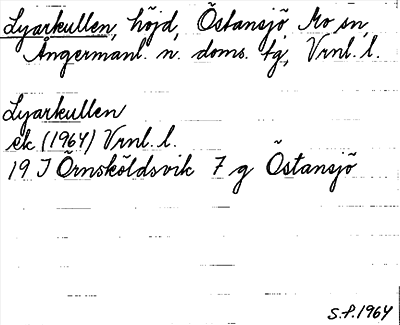 Lyarkullen, höjd, Östansjö, Mo sn,
Ångermanl. n. doms. tg, Vrnl. l.
Lyarkullen
ek (1964) Vrnl. l.
19 J Örnsköldsvik 7 g Östansjö
S.P. 1964